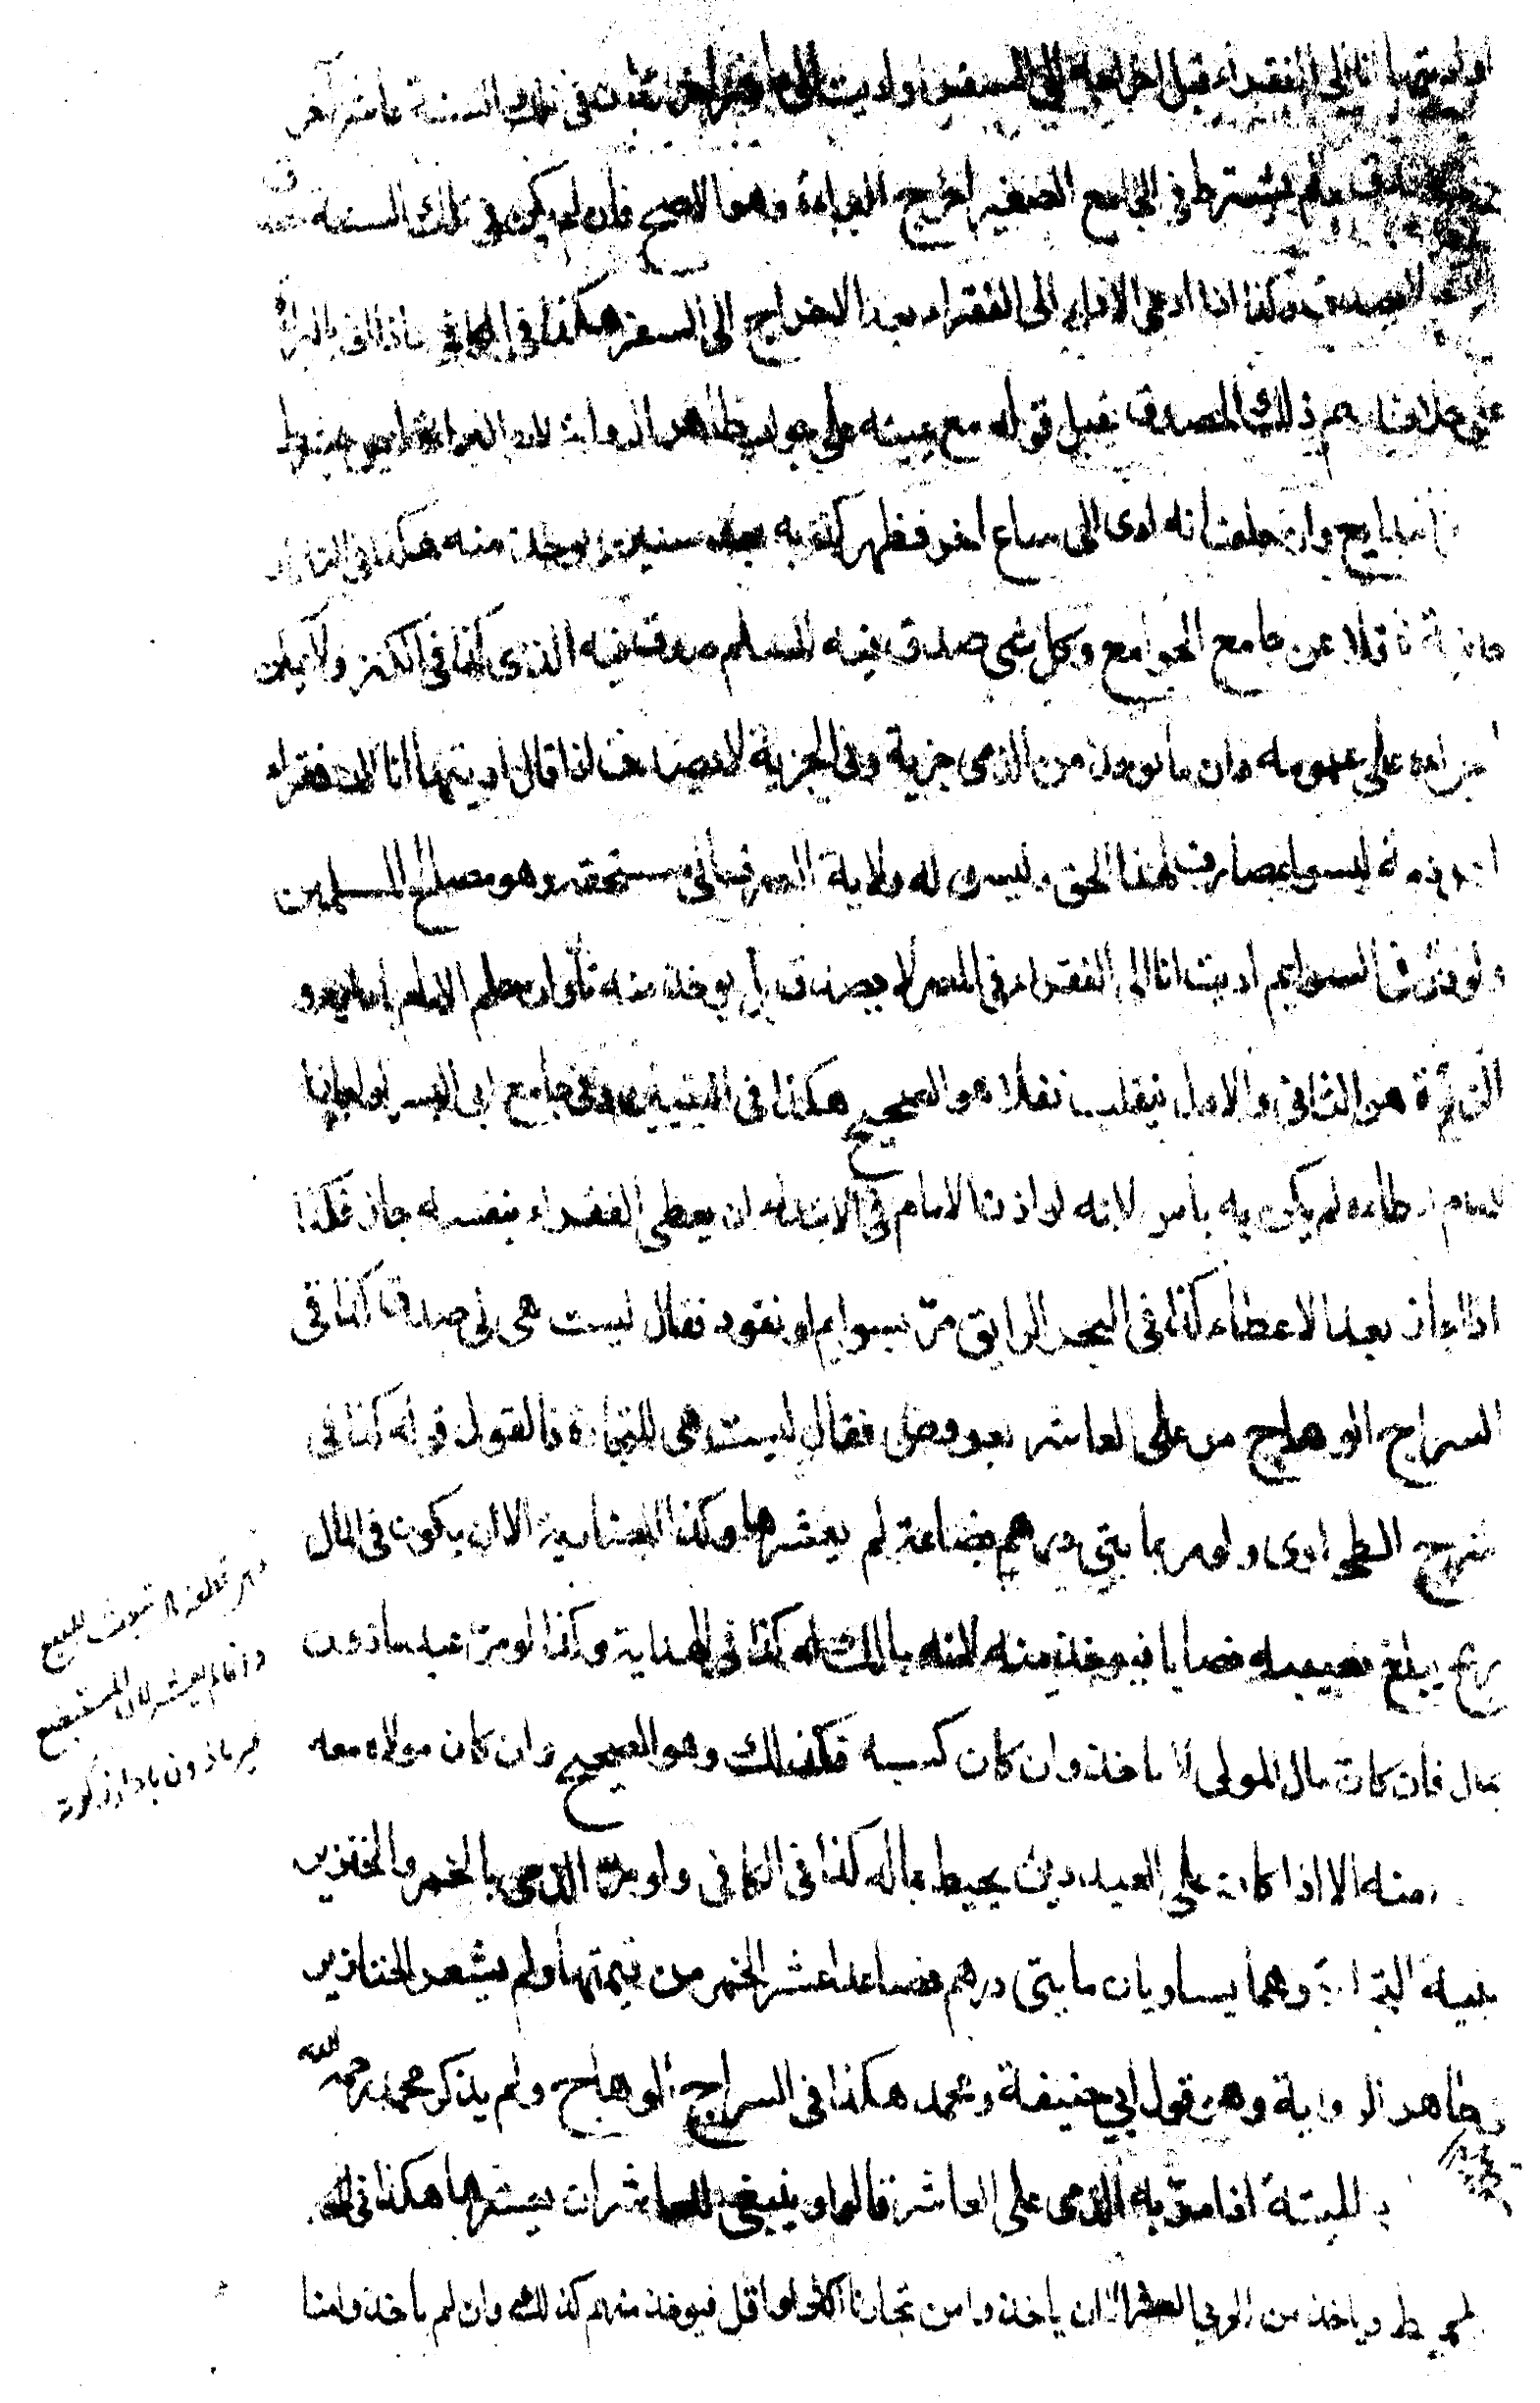 او اديتها انا الى الفقراء قبل اخراجه الى السفر او اديت الى عاشر اخر وكان في تلك السنة عاشر آخر
ولم يشترط في الجامع الصغير اخراج البراءة وهو الاصح فان لم يكن في تلك السنة
لا يصدق وكذا اذا ادعى الاداء الى الفقراء بعد الاخراج الى السفر هكذا في الكافي فاذا اتى بالبراءة
على خلاف اسم ذلك المصدق يقبل قوله مع يمينه على جواب ظاهر الرواية لان البراءة ليس بشرط
وان حلف انه ادى الى ساع آخر فظهر كذبه بعد سنين يوخذ منه هكذا في التاتار
خانية ناقلا عن جامع الجوامع وكل شي صدق فيه المسلم صدق فيه الذمي كذا في الكنز ولا يمكن
اجراءه على عمومه فان ما يوخذ من الذمي جزية وفي الجزية لا يصدق اذا قال اديتها انا لان فقراء
اهل الذمة ليسوا بمصارف لهذا الحق وليس له ولاية الصرف الى مستحقه وهو مصالح المسلمين
ولو قال في السوايم اديت انا الى الفقراء في المصر لا يصدق بل يوخذ منه ثانيا وان علم الامام بادائه و
الزكوة هو الثاني والاول ينقلب نفلا هو الصحيح هكذا في التبيين وفي جامع ابي اليسر لو اجاز
الامام اعطاءه لم يكن به باس لانه لو اذن الامام في الابتداء ان يعطي الفقراء بنفسه جاز فكذا
اذا اجاز بعد الاعطاء كذا في البحر الرايق مرّ بسوايم او نقود فقال ليست هي لي صدق كذا في
السراج الوهاج مر على العاشر بعروض فقال ليست هي للتجارة فالقول قوله كذا في
شرح الطحاوي ولو مر بمايتي درهم بضاعة لم يعشرها وكذا المضاربة الا ان يكون في المال
ربح يبلغ نصيبه نصابا فيوخذ منه لانه مالك له كذا في الهداية وكذا لو مرّ عبد ماذون
بمال فان كان مال المولى لا ياخذ وان كان كسبه فكذلك وهو الصحيح وان كان مولاه معه
منه الا اذا كان على العبد دين يحيط بماله كذا في الكافي ولو مرّ الذمي بالخمر والخنزير
بنية التجارة وهما يساويان مايتي درهم فصاعدا عشر الخمر من قيمتها ولم يعشر الخنازير
ظاهر الرواية وهو قول ابي حنيفة ومحمد هكذا في السراج الوهاج ولم يذكر محمد رحمه الله
الميتة اذا مرّ به الذمي على العاشر قالوا وينبغي للعاشر ان يعشرها هكذا في
المحيط وياخذ من الحربي العشر الا ان ياخذوا من تجارنا اكثر او اقل فيوخذ منهم كذلك وان لم ياخذوا منا
وانما لم يعشر لان المستبضع
غير ماذون باداء زكوة